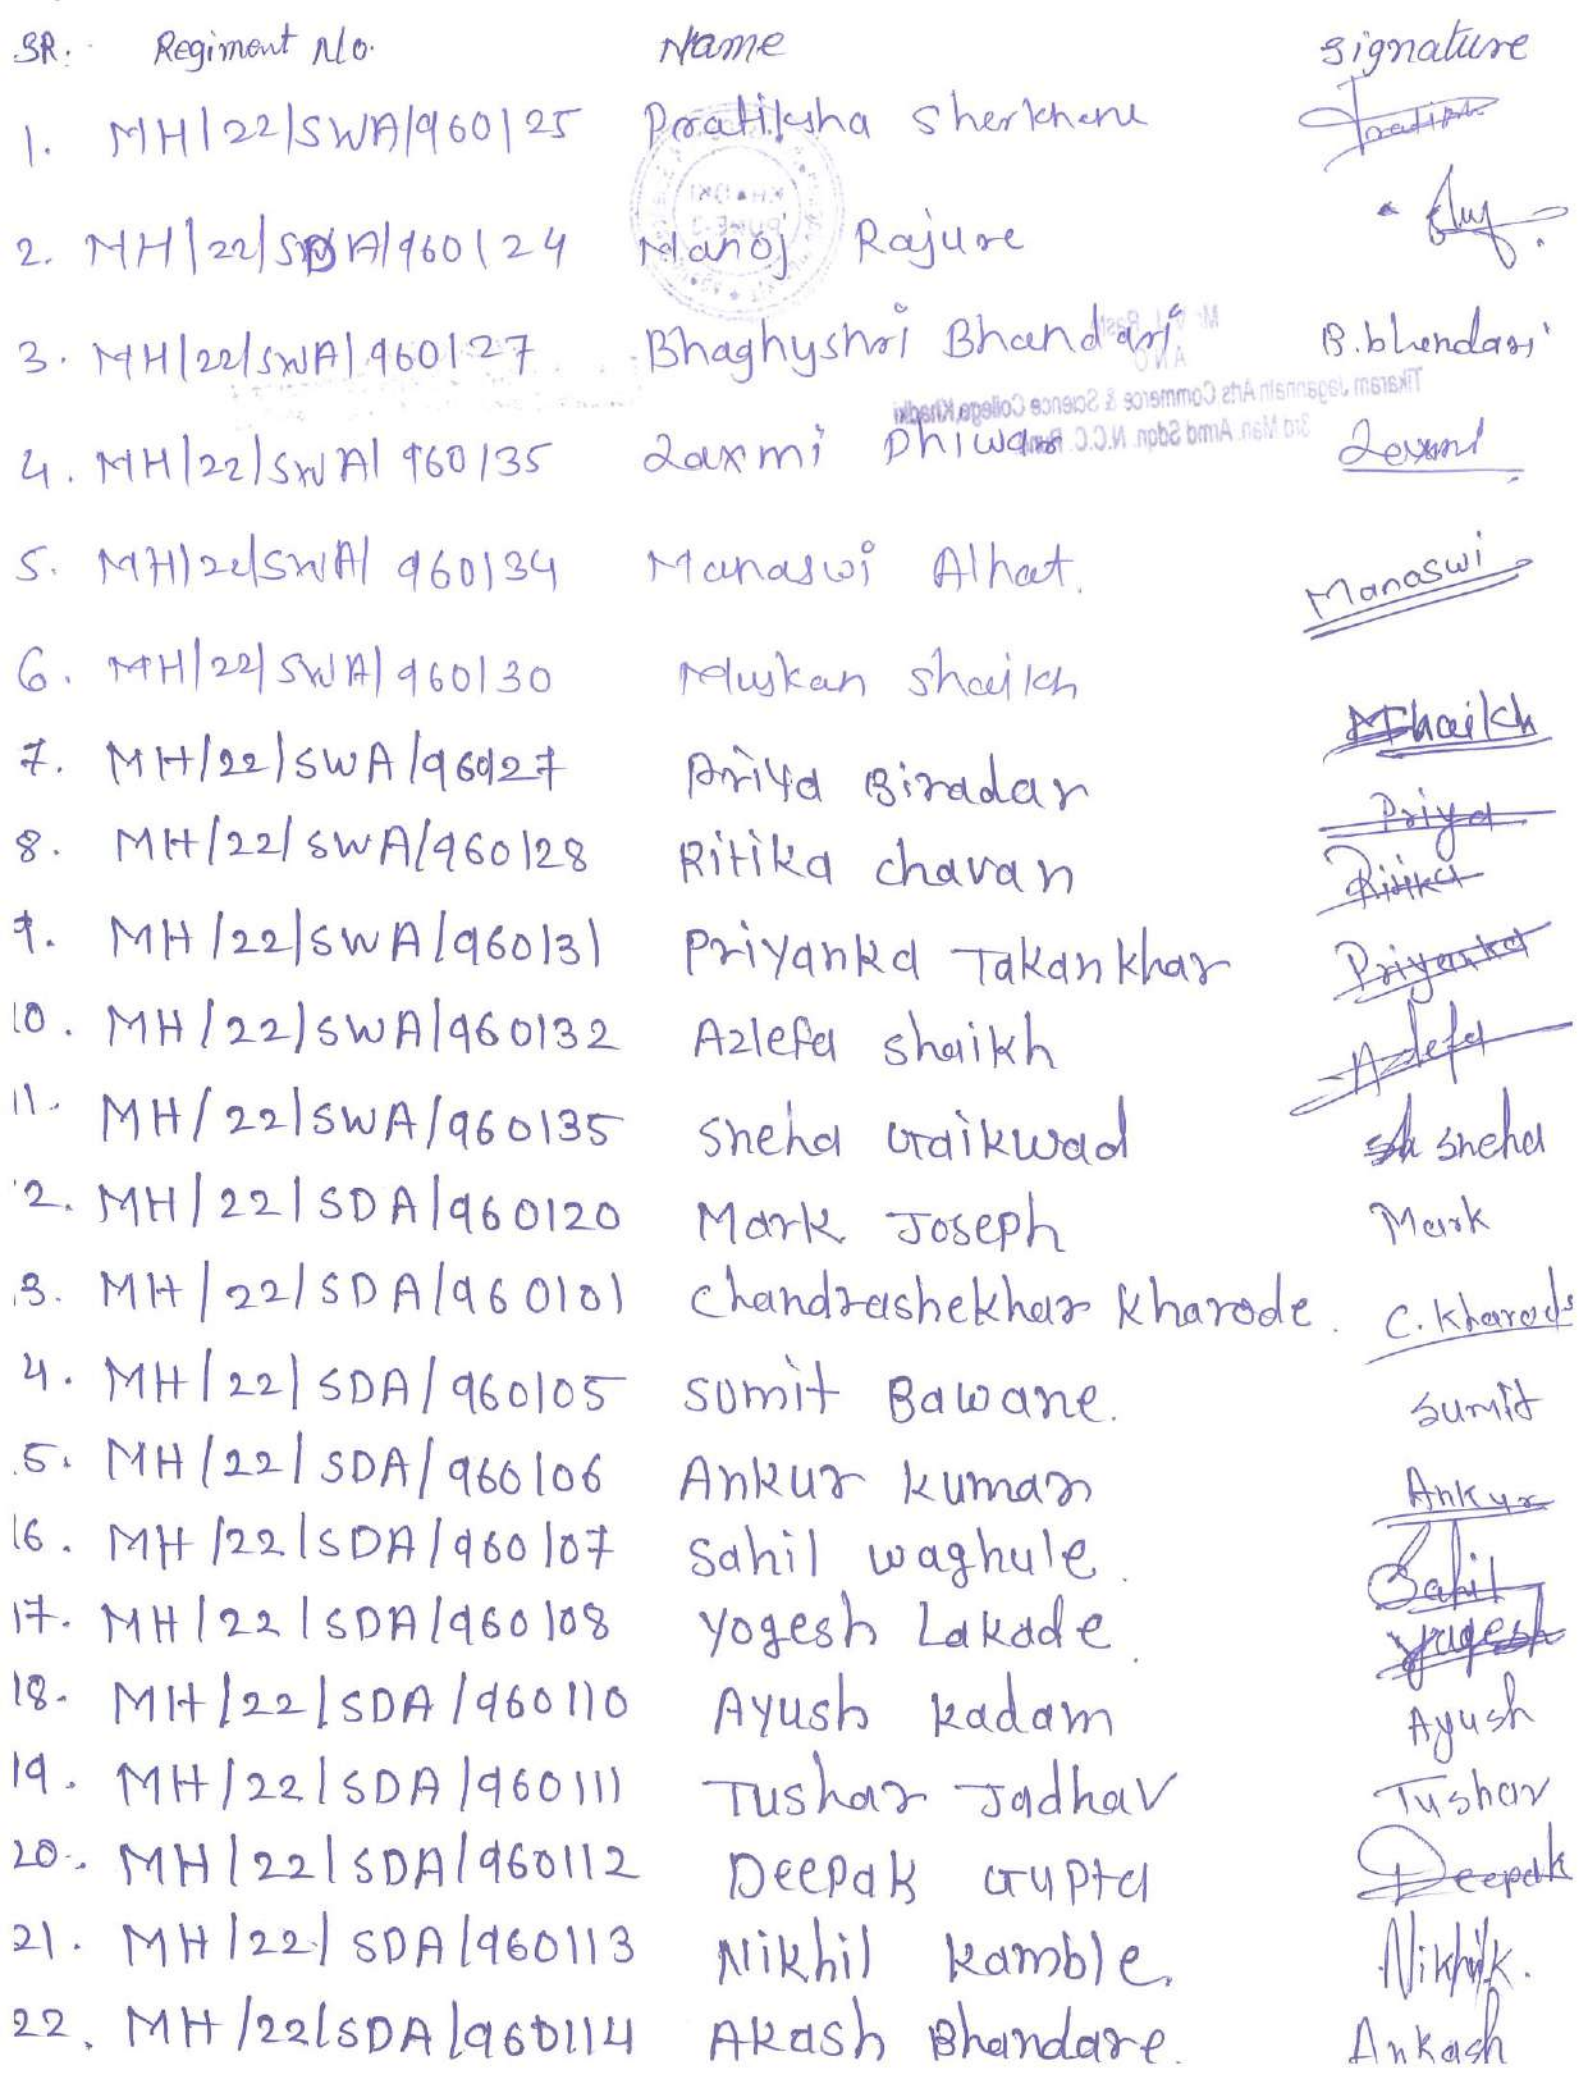 SR. Regiment No. Name Signature
1. MH/22/SWA/960125 Pratiksha Sherkhane
2. MH/22/SDA/960124 Manoj Rajure
3. MH/22/SWA/960127 Bhaghyshri Bhandari B.bhandari
4. MH/22/SWA/960135 Laxmi Dhiwar Laxmi
5. MH/22/SWA/960134 Manaswi Alhat. Manaswi
6. MH/22/SWA/960130 Muskan Shaikh MShaikh
7. MH/22/SWA/960127 Priya Biradar Priya
8. MH/22/SWA/960128 Ritika chavan Ritika
9. MH/22/SWA/960131 Priyanka Takankhar Priyanka
10. MH/22/SWA/960132 Azlefa shaikh Azlefa
11. MH/22/SWA/960135 Sneha Gaikwad Sneha
2. MH/22/SDA/960120 Mark Joseph Mark
3. MH/22/SDA/960101 Chandrashekhar Kharode. C. Kharode
4. MH/22/SDA/960105 Sumit Bawane. Sumit
5. MH/22/SDA/960106 Ankur Kumar Ankur
16. MH/22/SDA/960107 Sahil waghule. Sahil
17. MH/22/SDA/960108 Yogesh Lakade. Yogesh
18. MH/22/SDA/960110 Ayush Kadam Ayush
19. MH/22/SDA/960111 Tushar Jadhav Tushar
20. MH/22/SDA/960112 Deepak Gupta Deepak
21. MH/22/SDA/960113 Nikhil Kamble. Nikhil K.
22. MH/22/SDA/960114 Akash Bhandare. Ankash